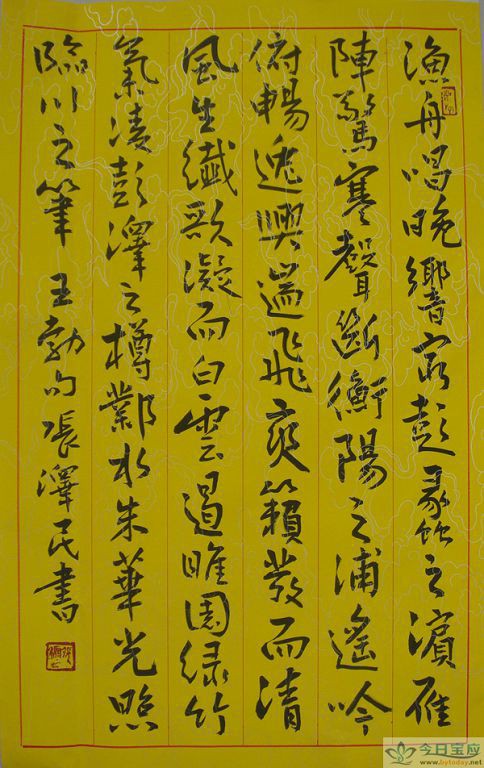 漁舟唱晚響窮彭蠡之濱雁
陣驚寒聲斷衡陽之浦遙吟
俯暢逸興遄飛爽籟發而清
風生纖歌凝而白雲遏睢園绿竹
氣凌彭澤之樽鄴水朱華光照
臨川之筆 王勃句 張澤民書
今日宝应
www.bytoday.net